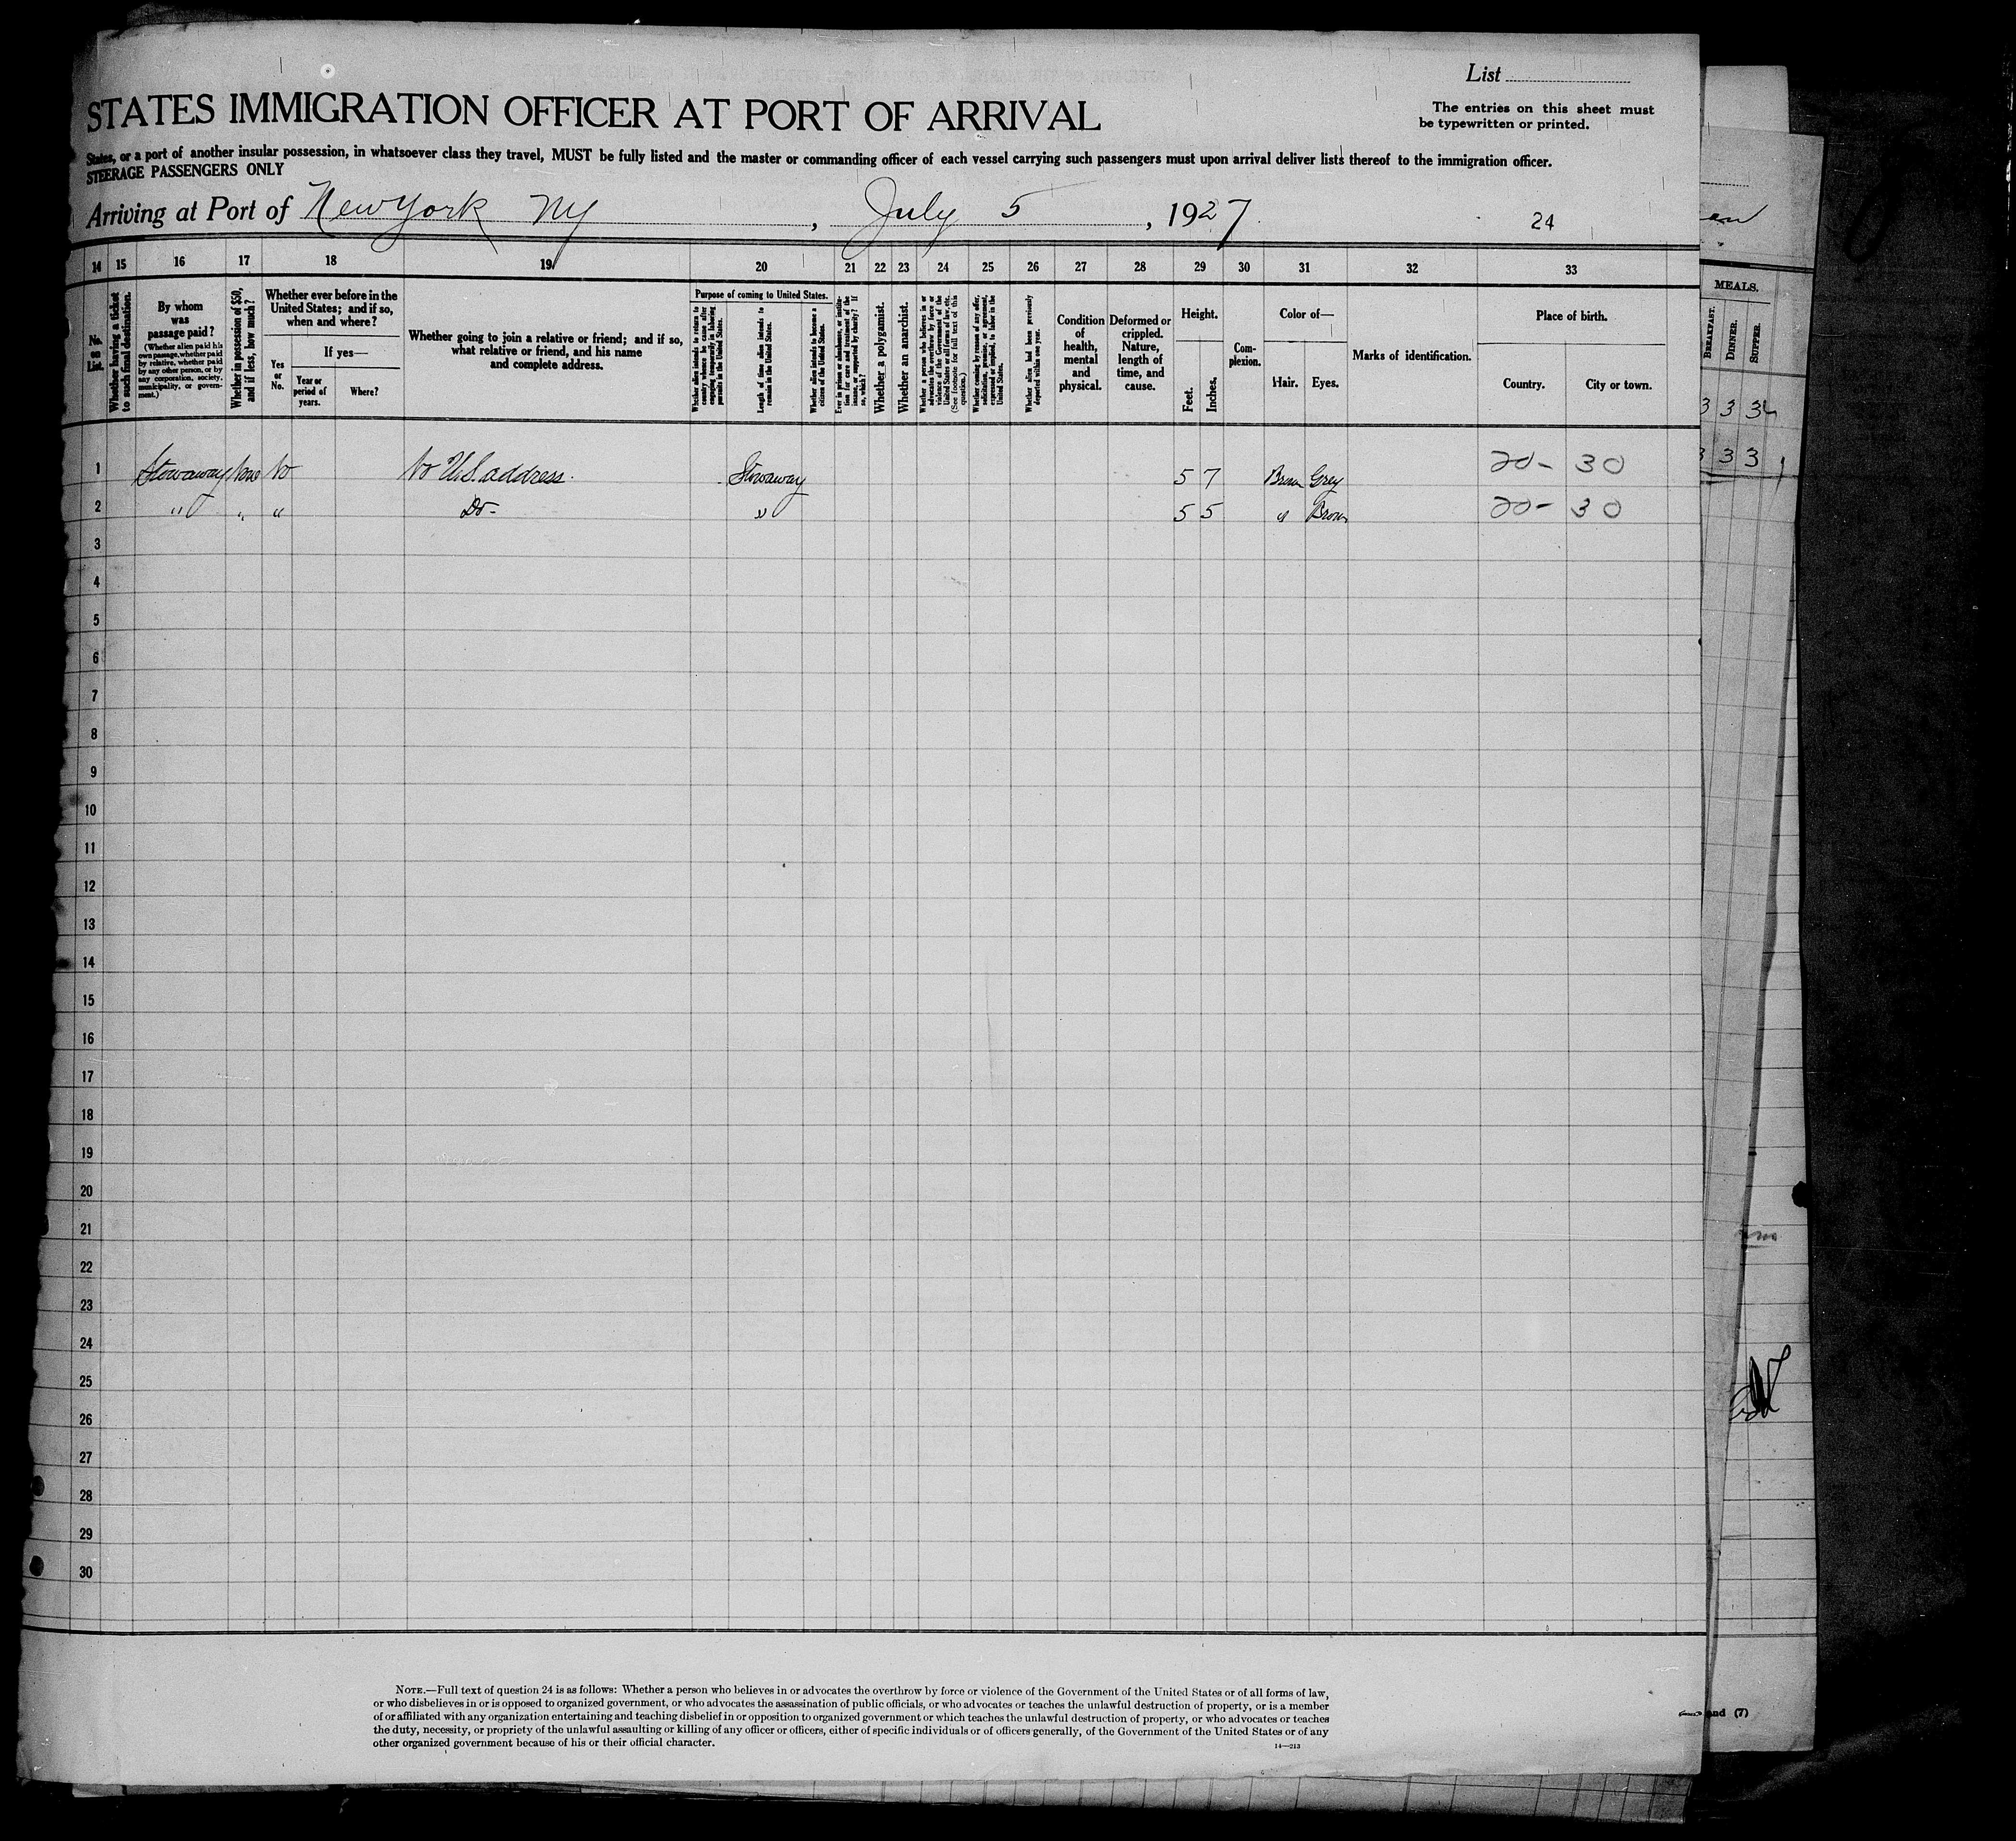 List
STATES IMMIGRATION OFFICER AT PORT OF ARRIVAL
The entries on this sheet must
be typewritten or printed.
States, or a port of another insular possession, in whatsoever class they travel, MUST be fully listed and the master or commanding officer of each vessel carrying such passengers must upon arrival deliver lists thereof to the immigration officer.
STEERAGE PASSENGERS ONLY
Arriving at Port of New York NY, July 5, 1927
24
14 15 16 17 18 19 20 21 22 23 24 25 26 27 28 29 30 31 32 33
No. on List.
Whether having a ticket to such final destination.
By whom was passage paid?
(Whether alien paid his own passage, whether paid by relative, whether paid by any other person, or by any corporation, society, municipality, or government.)
Whether in possession of $50, and if less, how much?
Whether ever before in the United States; and if so, when and where?
Yes or No.
If yes—
Year or period of years.
Where?
Whether going to join a relative or friend; and if so, what relative or friend, and his name and complete address.
Purpose of coming to United States.
Whether alien intends to return to country whence he came after engaging temporarily in laboring pursuits in the United States.
Length of time alien intends to remain in the United States.
Whether alien intends to become a citizen of the United States.
Ever in prison or almshouse, or institution for care and treatment of the insane, or supported by charity? If so, which?
Whether a polygamist.
Whether an anarchist.
Whether a person who believes in or advocates the overthrow by force or violence of the Government of the United States or all forms of law, etc. (See footnote for full text of this question.)
Whether coming by reason of any offer, solicitation, promise, or agreement, expressed or implied, to labor in the United States.
Whether alien had been previously deported within one year.
Condition of health, mental and physical.
Deformed or crippled. Nature, length of time, and cause.
Height.
Feet.
Inches.
Complexion.
Color of—
Hair.
Eyes.
Marks of identification.
Place of birth.
Country.
City or town.
MEALS.
BREAKFAST.
DINNER.
SUPPER.
1 Stowaway None No No U.S. address. Stowaway 5 7 Brown Grey 20- 30
2 " " " Do- " 5 5 " Brown 20- 30
3
4
5
6
7
8
9
10
11
12
13
14
15
16
17
18
19
20
21
22
23
24
25
26
27
28
29
30
3 3
3 3 3
NOTE.—Full text of question 24 is as follows: Whether a person who believes in or advocates the overthrow by force or violence of the Government of the United States or of all forms of law,
or who disbelieves in or is opposed to organized government, or who advocates the assassination of public officials, or who advocates or teaches the unlawful destruction of property, or is a member
of or affiliated with any organization entertaining and teaching disbelief in or opposition to organized government or which teaches the unlawful destruction of property, or who advocates or teaches
the duty, necessity, or propriety of the unlawful assaulting or killing of any officer or officers, either of specific individuals or of officers generally, of the Government of the United States or of any
other organized government because of his or their official character.
14—213
and (7)